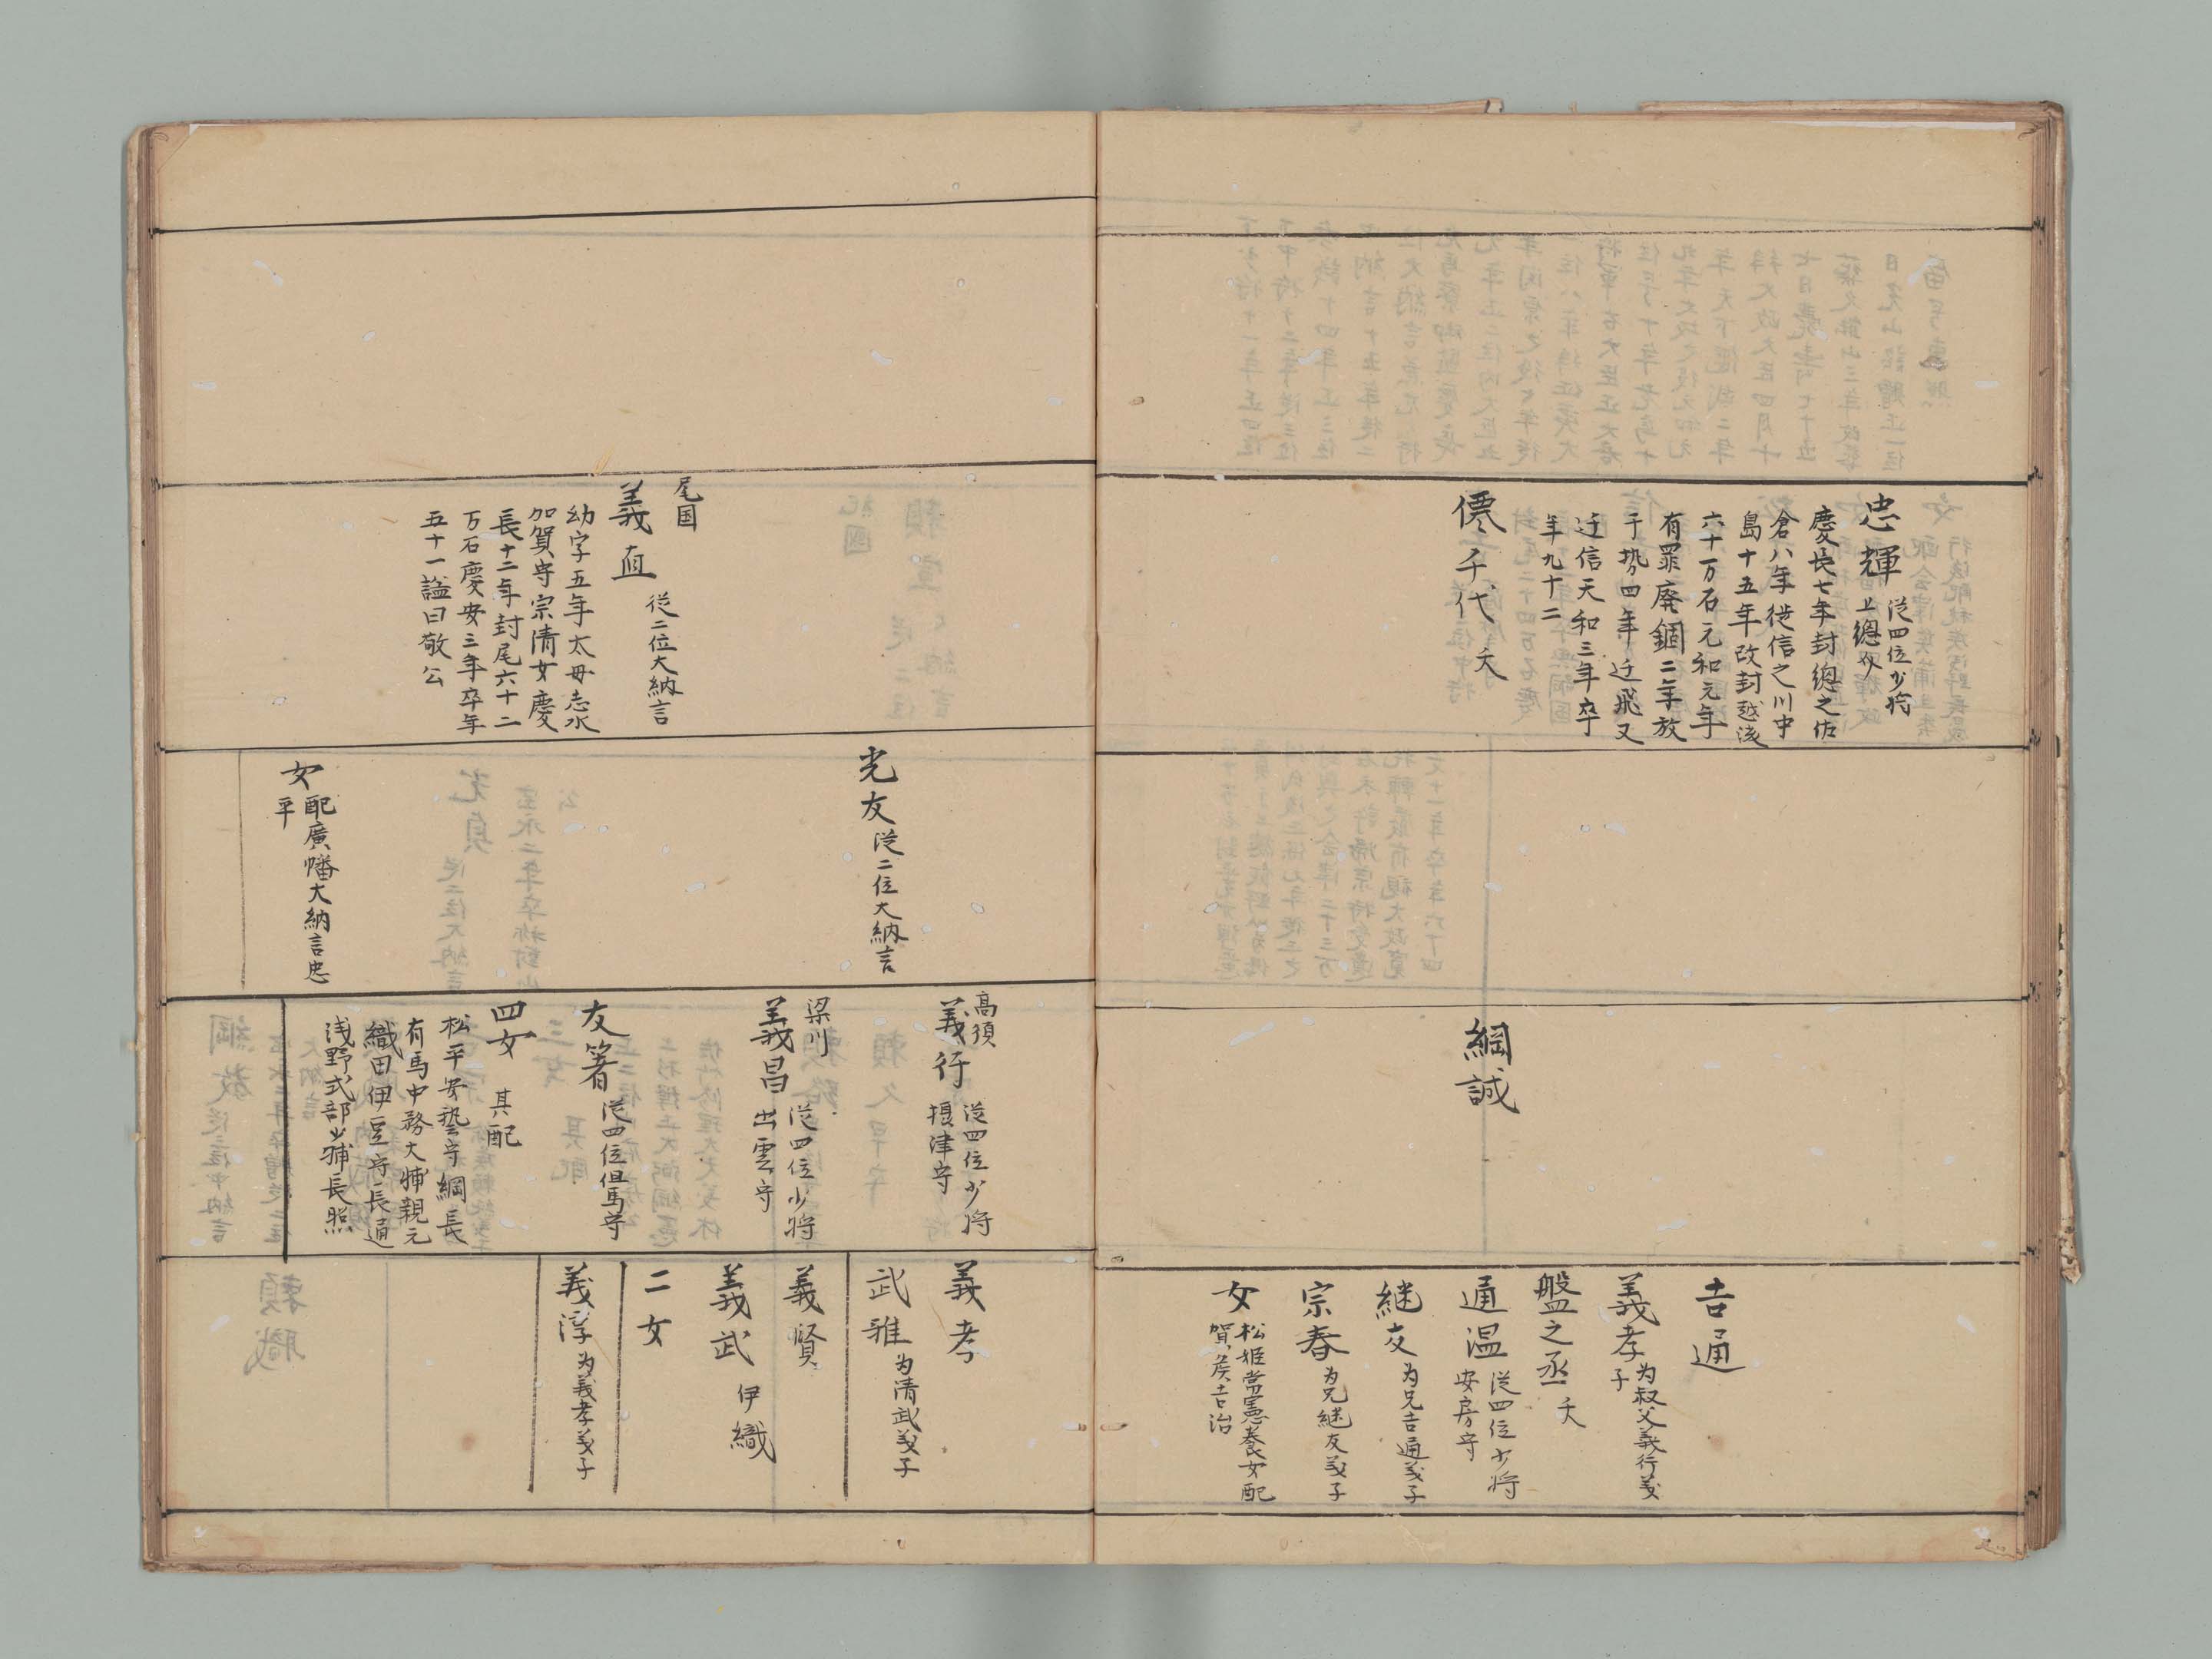 忠輝
従四位少将
上總介
慶長七年封總之佐
倉八年徙信之川中
島十五年改封越後
六十万石元和元年
有罪廃錮二年放
于勢四年迁飛又
迁信天和三年卒
年九十二
僊千代 夭
綱誠
吉通
義孝
为叔父義行義
子
盤之丞 夭
通温
従四位少将
安房守
継友
为兄吉通義子
宗春
为兄継友義子
女
松姫常憲養女配
賀矦吉治
尾国
義直
従二位大納言
幼字五年太母志水
加賀守宗清女慶
長十二年封尾六十二
万石慶安三年卒年
五十一謚曰敬公
光友
従二位大納言
女
配廣幡大納言忠
平
高須
義行
従四位少将
摂津守
梁川
義昌
従四位少将
出雲守
友著
従四位但馬守
四女 其配
松平安藝守綱長
有馬中務大輔親元
織田伊豆守長通
浅野式部少輔長照
義孝
武雅
为清武義子
義賢
義武 伊織
二女
義淳
为義孝義子